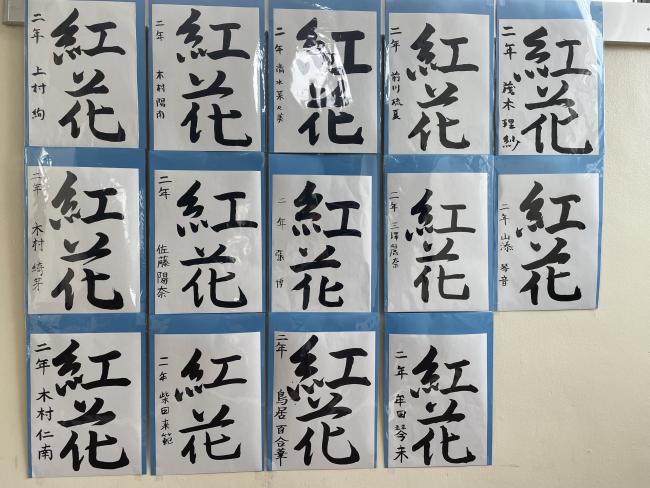 紅花
二年 上村 絢
紅花
二年 木村陽南
紅花
二年 清水菜々美
紅花
二年 前川琉夏
紅花
二年 茂木理紗
紅花
二年 木村 綺芽
紅花
二年 佐藤陽奈
紅花
二年 張 博
紅花
二年
紅花
二年 山添 琴音
紅花
二年 木村仁南
紅花
二年 柴田来範
紅花
二年 鳥居百合華
紅花
二年 牟田琴未